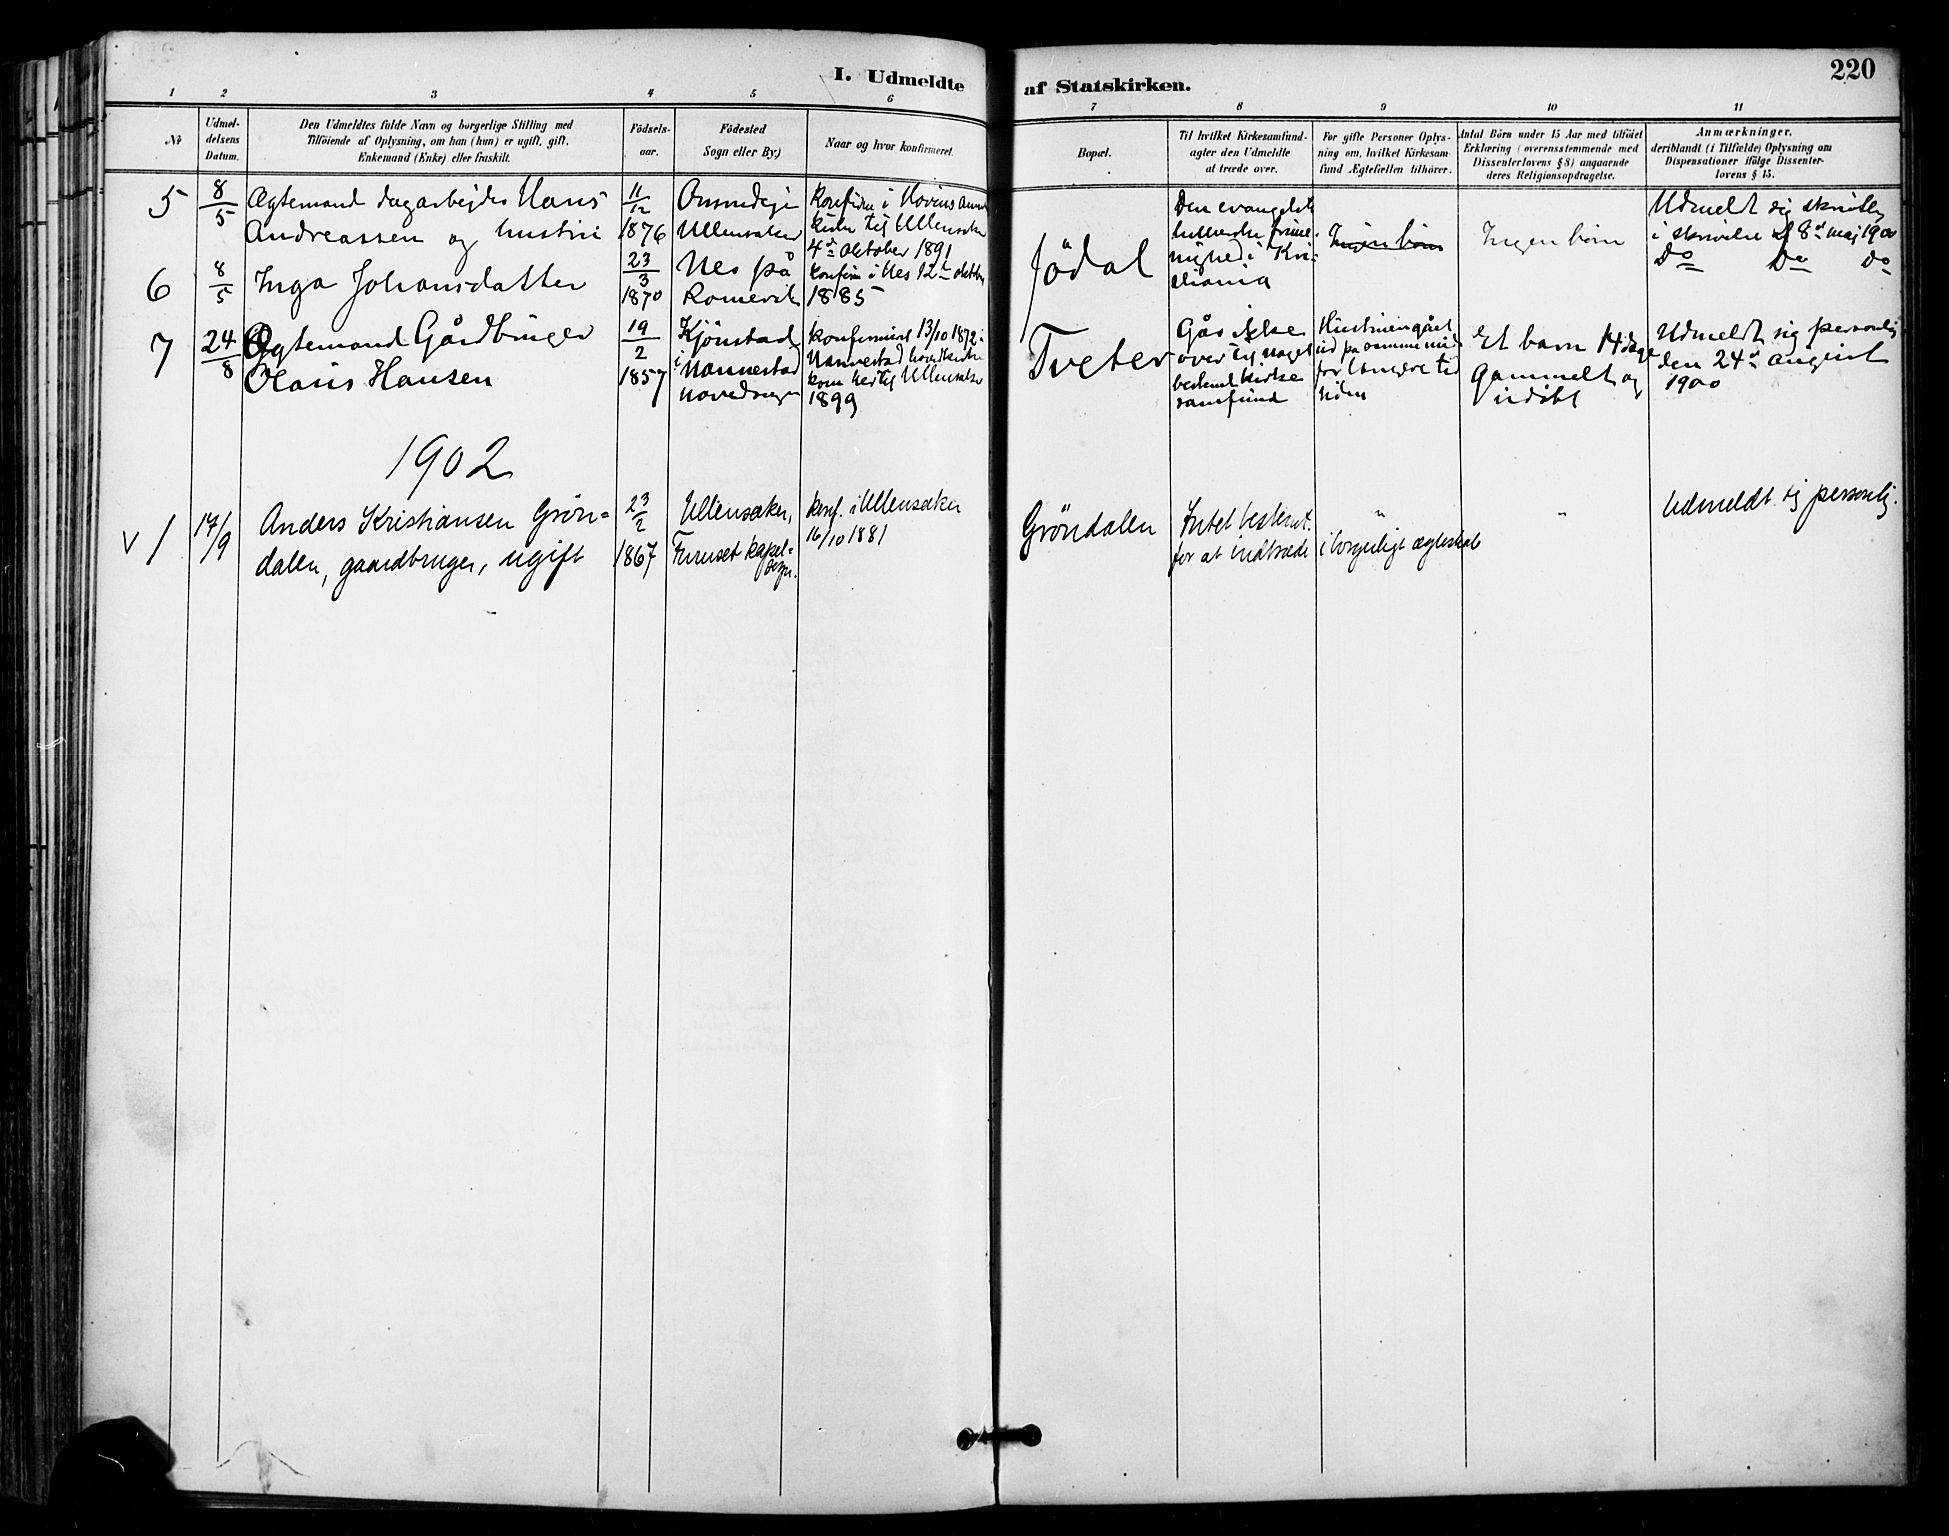 I. Udmeldte
af Statskirken.
220
1 2 3 4 5 6 7 8 9 10 11
No
Udmel-
delsens
Datum.
Den Udmeldtes fulde Navn og borgerlige Stilling med
Tilföiende af Oplysning, om han (hun) er ugift, gift,
Enkemand (Enke) eller fraskilt.
Födsels-
aar.
Födested
Sogn eller By.)
Naar og hvor konfirmeret.
Bopæl.
Til hvilket Kirkesamfund-
agter den Udmeldte
at træde over.
For gifte Personer Oplys-
ning om, hvilket Kirkesam-
fund Ægtefællen tilhörer.
Antal Börn under 15 Aar med tilföiet
Erklæring (overensstemmende med
Dissenterlovens § 8) angaaende
deres Religionsopdragelse.
Anmærkninger,
deriblandt (i Tilfælde) Oplysning om
Dispensationer ifölge Dissenter-
lovens § 15.
5
8/5
Ægtemand dagarbejder Hans
Andreassen og hustru
11/12
1876
Ullensaker
Konfirm i Hovins
kirke Ullensaker
4de Oktober 1891
Jødal
Den evangelisk
lutherske frime-
nighed i Kri-
stiania
Ingen børn
Ingen børn
Udmeldt sig skriftlig
i skrivelse af 8de maj 1900
6
8/5
Inga Johansdatter
23/3
1870
Nes på
Romerik
Konfirm i Nes 12te oktober
1885
Do Do Do
7
24/8
Ægtemand Gårdbruger
Olaus Hansen
19/2
1857
Kjönstad
i Nannestad
hovedsogn
konfirmeret 13/10 1872 i
Nannestad hovedkirke
kom her til Ullensaker
1899
Tveter
Går ikke
over til noget
bestemt kirke
samfund
Hustruen gået
ud på samme vis
for længere tid
siden
Et barn 14 dage
Gammelt og
udöbt
Udmeldt sig personlig
den 24de august
1900
1902
v 1
17/9
Anders Kristiansen Grön=
dalen, gaardbruger, ugift
23/2
1867
Ullensaker,
Furuset kapel=
sogn.
konf. i Ullensaker
16/10 1881
Gröndalen
Intet bestemt.
for at indtræde
"
i borgerligt ægteskab
"
Udmeldt sig personlig.